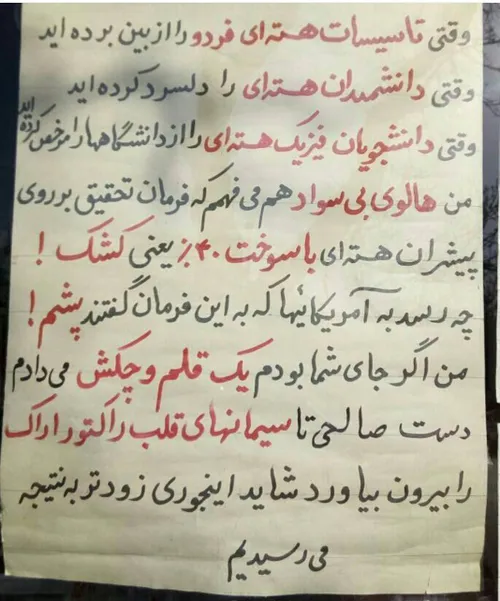 وقتی تاسیسات هسته ای فردو را از بین برده اید
وقتی دانشمندان هسته ای را دلسرد کرده اید
وقتی دانشجویان فیزیک هسته ای را از دانشگاهها را مرخص کرده اید
من هالوی بی سواد هم می فهمم که فرمان تحقیق بر روی
پیشران هسته ای با سوخت ۴۰٪ یعنی کشک !
چه رسد به آمریکائیها که به این فرمان گفتند پشم !
من اگر جای شما بودم یک قلم و چکش می دادم
دست صالحی تا سیمانهای قلب راکتور اراک
را بیرون بیاورد شاید اینجوری زودتر به نتیجه
می رسیدیم